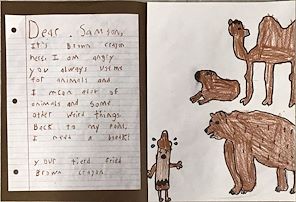 Dear, Samson,
It's Brown crayon
here. I am angry
you always use me
for animals and
I mean alot of
animals and some
other weird things.
Back to my point,
I need a break!
your tierd fried
Brown crayon